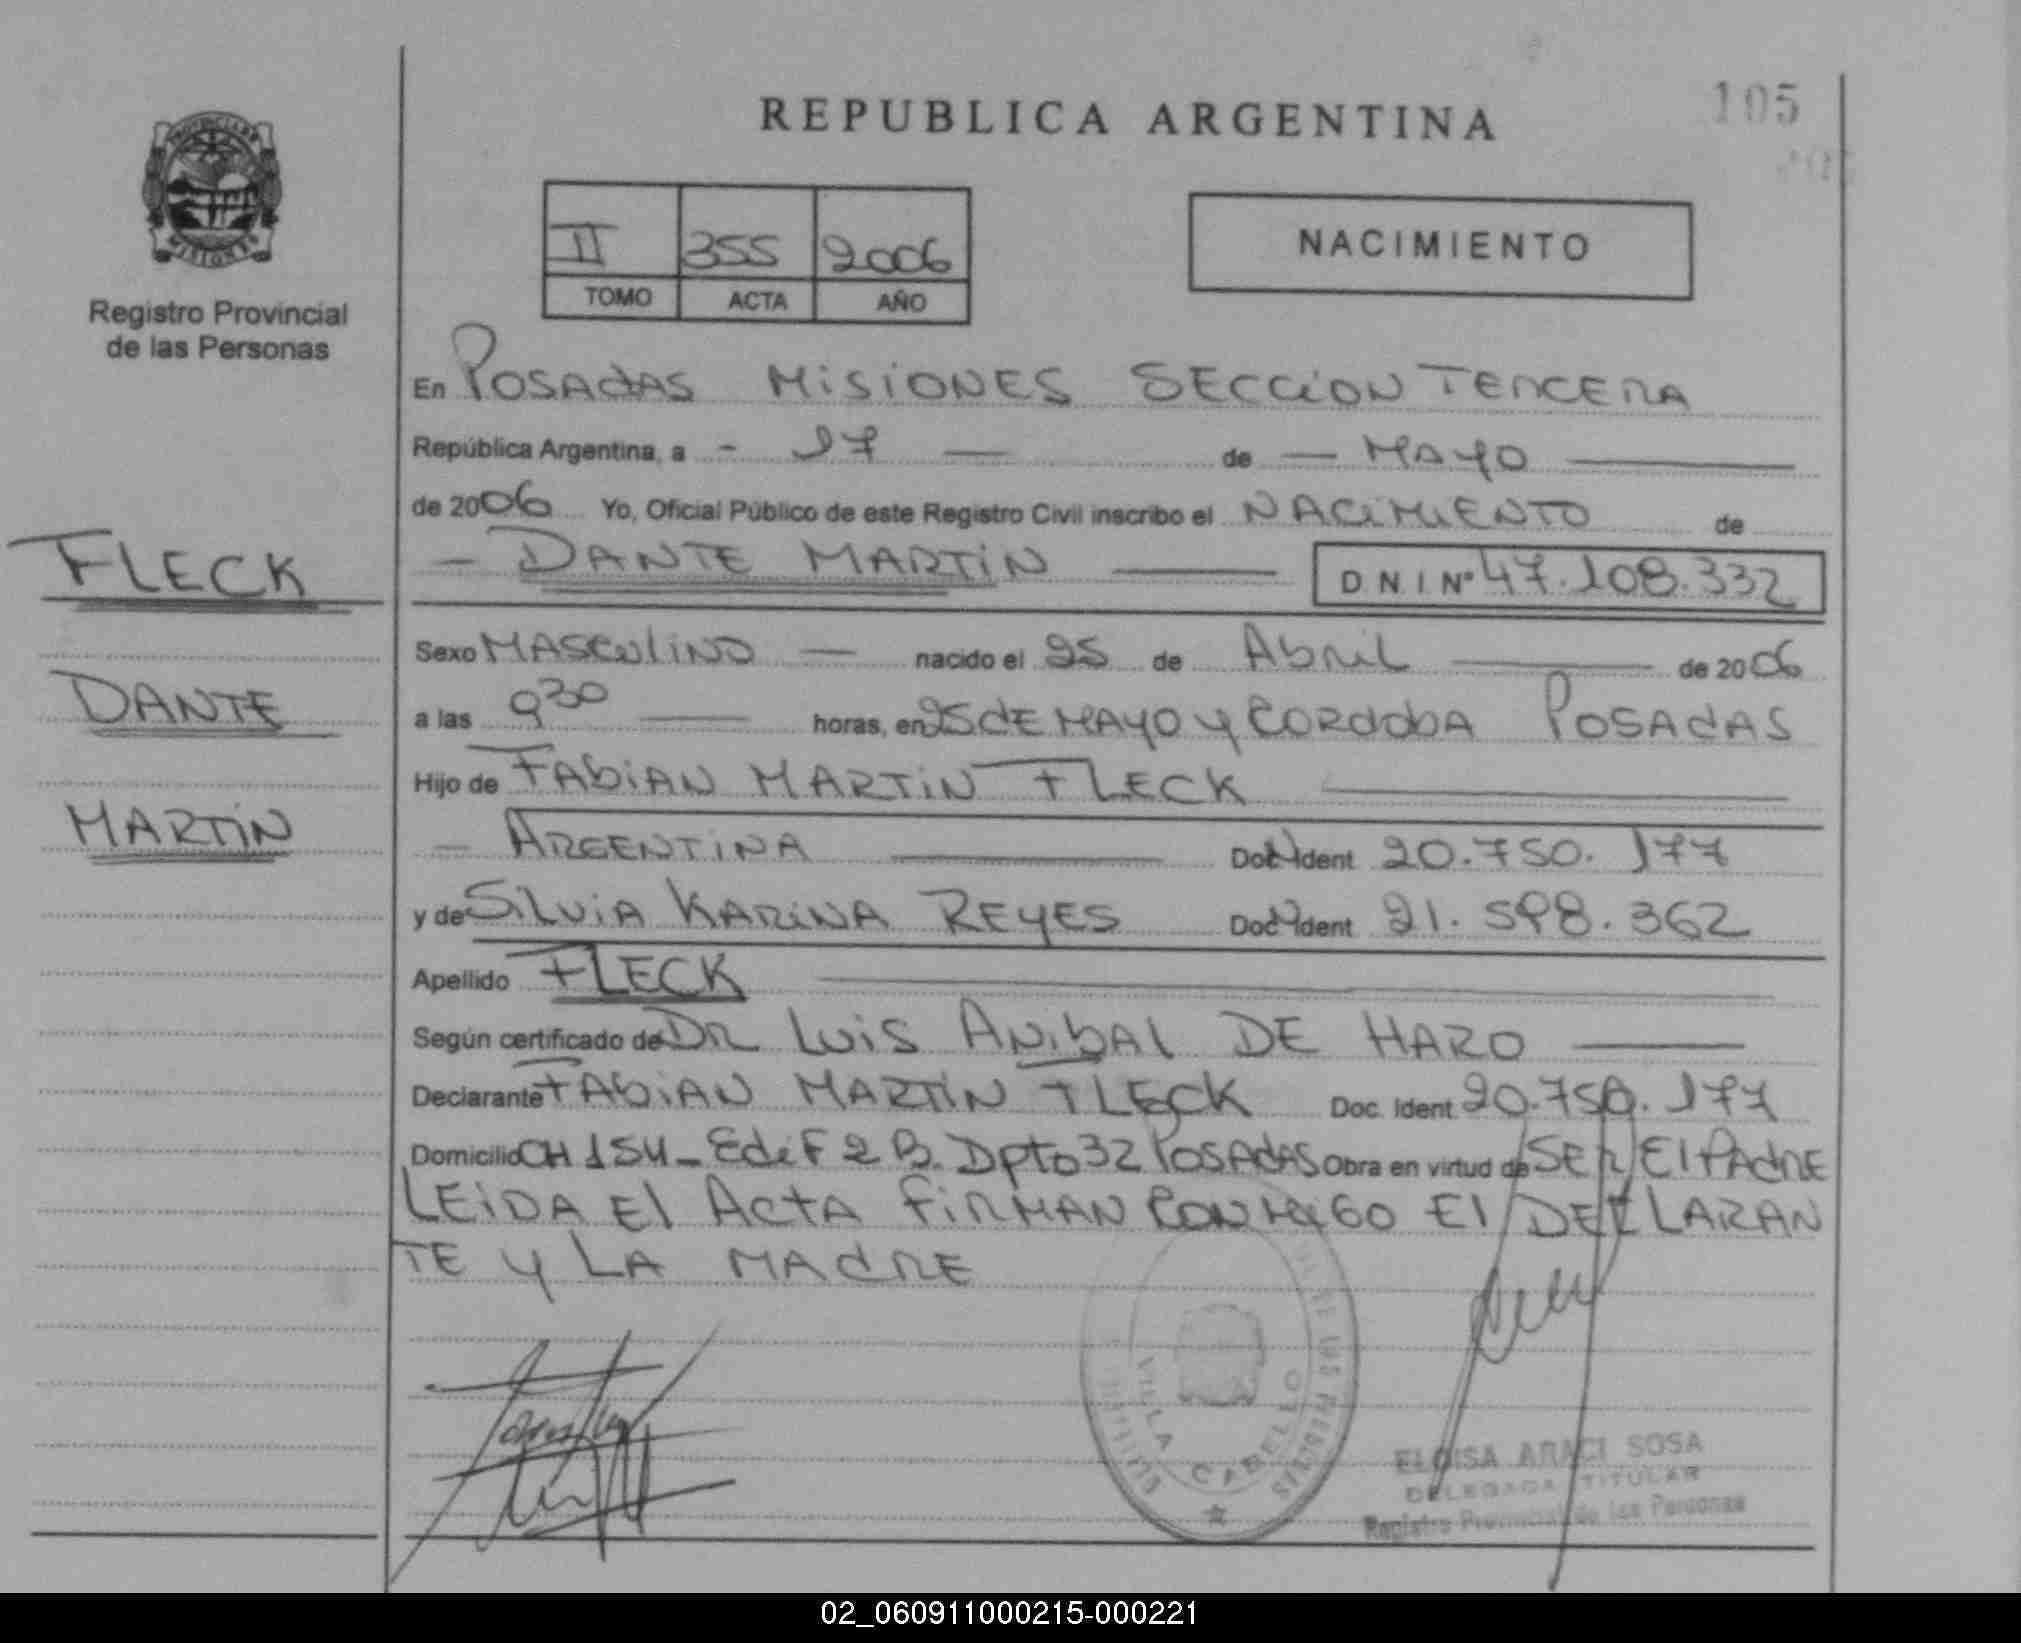 REPUBLICA ARGENTINA
105
PROVINCIA DE
MISIONES
Registro Provincial
de las Personas
II 355 2006
TOMO ACTA AÑO
NACIMIENTO
En POSAdAS MISIONES SECCION TERCERA
República Argentina, a - 17 — de — MAYO —
de 2006 Yo, Oficial Público de este Registro Civil inscribo el NACIMIENTO de
— DANTE MARTIN — D N I Nº 47.108.332
FLECK
DANTE
MARTIN
Sexo MASCULINO — nacido el 25 de Abril — de 2006
a las 9 30 — horas, en 25 dE MAYO y CORdObA POSAdAS
Hijo de FAbIAN MARTIN FLECK —
— ARGENTINA — Doc Ident 20.750.177
y de SILVIA KARINA REYES Doc Ident 21.598.362
Apellido FLECK —
Según certificado de DR LUIS ANIbAL DE HARO —
Declarante FAbIAN MARTIN FLECK Doc. Ident. 20.750.177
Domicilio CH 154 - EdiF 2 B. Dpto 32 POSAdAS Obra en virtud de SER El PAdRE
LEIDA El ACTA FIRMAN CONMIGO El DECLARAN
TE y LA MAdRE
VILLA CABELLO
ELOISA ARACI SOSA
DELEGADA TITULAR
Registro Provincial de las Personas
02_060911000215-000221